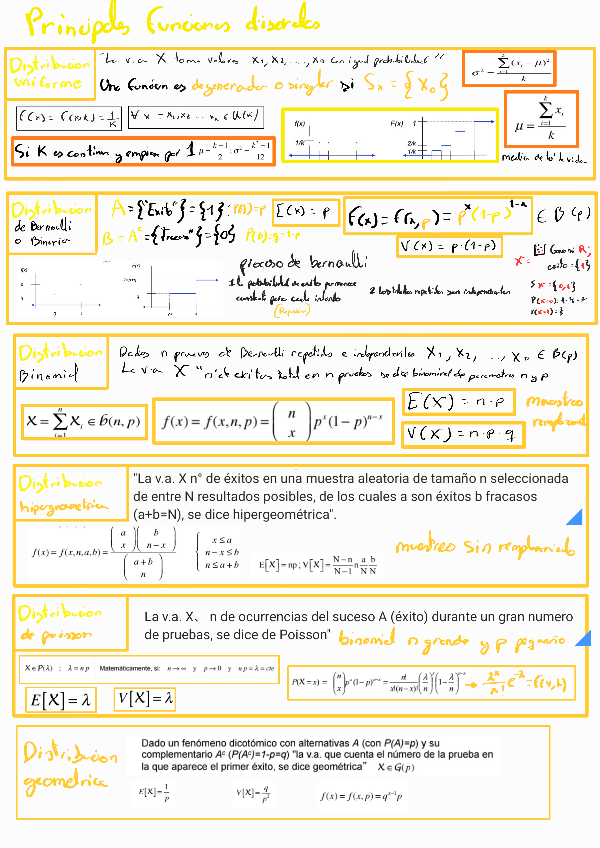 Principales Funciones discretas
Distribucion uniforme
"La v.a. X toma valores x₁, x₂, ..., xₙ con igual probabilidad"
Una función es degenerada o singler si Sₓ = {X₀}
σ² = Σ(xᵢ − μ)² / k
f(x) = f(x,k) = 1/K
∀ x = x₁, x₂ ... xₖ ∈
f(x)
1/k
F(x)
1
2/k
1/k
μ = Σxᵢ / k
media de la
Si K es continua y empieza por 1 μ = (k−1)/2 ; σ² = (k²−1)/12
Distribucion
de Bernoulli
o Binaria
A = {"Exito"} = {1} ; P(A)=p
E(x) = p
f(x) = f(x,p) = pˣ(1-p)¹⁻ˣ ∈ B(p)
B = Aᶜ = {"fracaso"} = {0} P(B)=q=1-p
V(x) = p·(1-p)
proceso de bernoulli
1 la probabilidad de exito permanece
constante para cada intento
2 los intentos repetidos son independientes
exito = {1}
Distribucion
Binomial
Dadas n pruebas de Bernoulli repetidas e independientes X₁, X₂, ..., Xₙ ∈ B(p)
La v.a. X "nº de exitos total en n pruebas se dice binomial de parametros n y p
X = Σ Xᵢ ∈ B(n, p)
f(x) = f(x, n, p) = (n x) pˣ(1 − p)ⁿ⁻ˣ
E(X) = n·p
V(X) = n·p·q
muestreo
Distribucion
hipergeometrica
"La v.a. X n° de éxitos en una muestra aleatoria de tamaño n seleccionada
de entre N resultados posibles, de los cuales a son éxitos b fracasos
(a+b=N), se dice hipergeométrica".
f(x) = f(x, n, a, b) = (a x)(b n−x) / (a+b n)
x ≤ a
n − x ≤ b
n ≤ a + b
E[X] = np ; V[X] = (N−n)/(N−1) n a/N b/N
muestreo sin remplazamiento
Distribucion
de poisson
La v.a. X、 n de ocurrencias del suceso A (éxito) durante un gran numero
de pruebas, se dice de Poisson" binomial n grande y p pequeño
X ∈ P(λ) ; λ = n p Matemáticamente, si: n → ∞ y p → 0 y n p = λ = cte
E[X] = λ
V[X] = λ
P(X = x) = (n x) pˣ(1−p)ⁿ⁻ˣ = n!/(x!(n−x)!) (λ/n)ˣ (1−λ/n)ⁿ⁻ˣ → λˣ/x! e^−λ = f(x,λ)
Distribucion
geometrica
Dado un fenómeno dicotómico con alternativas A (con P(A)=p) y su
complementario Aᶜ (P(Aᶜ)=1-p=q) "la v.a. que cuenta el número de la prueba en
la que aparece el primer éxito, se dice geométrica" X ∈ G(p)
E[X] = 1/p
V[X] = q/p²
f(x) = f(x, p) = qˣ⁻¹p